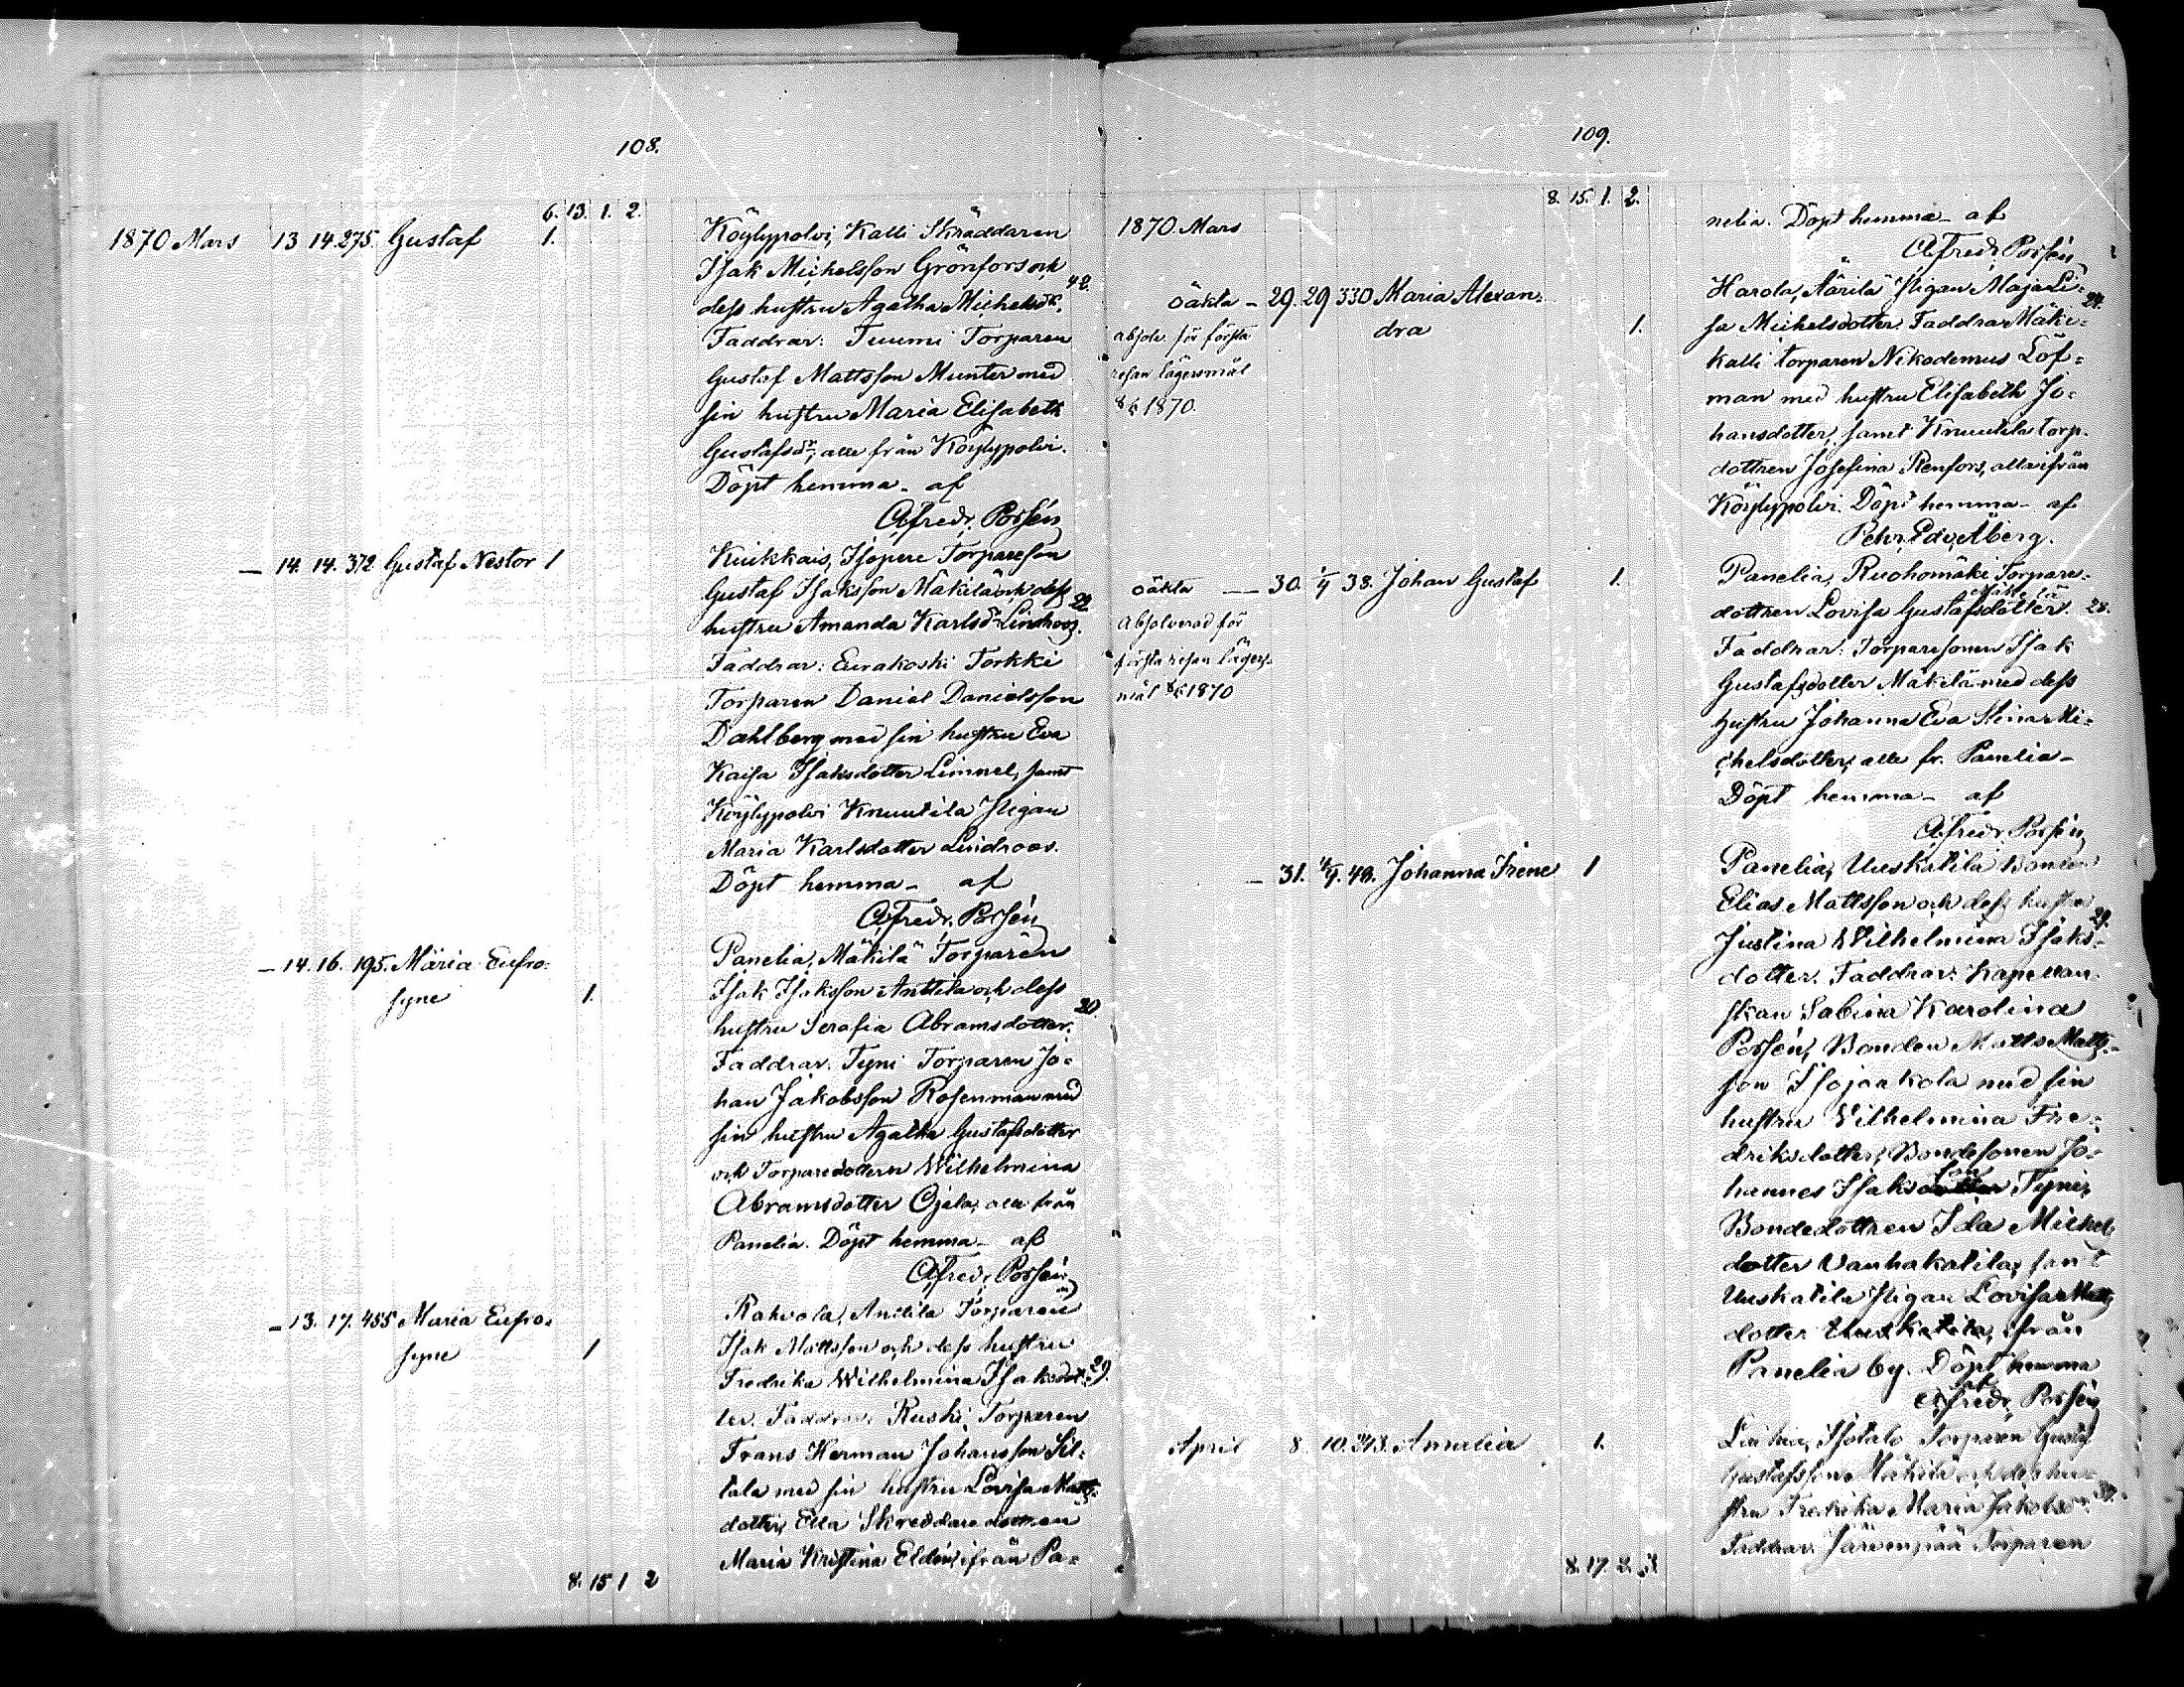 108.
6. 13. 1. 2.
1870 Mars 13 14. 275. Gustaf 1. Köylypolvi, Kalli Skräddaren
Isak Michelsson Grönfors och
dess hustru Agatha Michelsdr. 42.
Faddrar: Tuumi Torparen
Gustaf Mattsson Munter med
sin hustru Maria Elisabeth
Gustafsdr, alle från Köylypolvi.
Döpt hemma - af
A. Fredr. Porsén
— 14. 14. 372 Gustaf Nestor 1 Kuikkais, Isopere Torpareson
Gustaf Isaksson Mäkilä och dess
hustru Amanda Karlsdr Lindroos. 22
Faddrar: Eurakoski Torkki
Torparen Daniel Danielsson
Dahlberg med sin hustru Eva
Kaisa Isaksdotter Linnel, samt
Köylypolvi Knuutila Pigan
Maria Karlsdotter Lindroos.
Döpt hemma - af
A. Fredr. Porsén
— 14. 16. 195. Maria Eufro-
syne 1. Panelia, Mäkilä Torparen
Isak Isaksson Anttila och dess
hustru Serafia Abramsdotter. 20.
Faddrar. Tyni Torparen Jo-
han Jakobsson Rosenman med
sin hustru Agatha Gustafsdotter
och Torparedottern Wilhelmina
Abramsdotter Ojala, alla från
Panelia. Döpt hemma - af
A. Fredr. Porsén
— 13. 17. 455 Maria Eufro-
syne 1 Rahvola, Anttila Torparen
Isak Mattsson och dess hustru
Fredrika Wilhelmina Isaksdot- 29.
ter. Faddrar. Ruski Torparen
Frans Herman Johansson Sil-
tala med sin hustru Lovisa Matts-
dotter, Ella Skreddaredottren
Maria Kristina Eldén, ifrån Pa-
8. 15 1 2
109.
8. 15. 1. 2.
1870 Mars nelia. Döpt hemma - af
A. Fredr. Porsén
oäkta - 29. 29 330 Maria Alexan-
dra 1. Harola, Äärilä Pigan Maja Li-
sa Michelsdotter. Faddrar Mäki- 24.
absolv. för första
resan lägersmål
1870.
kalli torparen Nikodemus Löf-
man med hustru Elisabeth Jo-
hansdotter, samt Knuutila torp.
dottren Josefina Renfors, alla ifrån
Köylypolvi. Döpt hemma - af
Pehr Edv. Åberg.
oäkta — 30. 1/4 38. Johan Gustaf 1. Panelia, Ruohomäki Torpare-
dottren Lovisa Gustafsdotter. 28.
Absolverad för
första resan lägers-
mål 1870
Faddrar: Torparesonen Isak
Gustafsdotter Mäkelä med dess
hustru Johanna Eva Stina Mi-
chelsdotter, alle fr. Panelia -
Döpt hemma - af
A. Fredr. Porsén
— 31. 48. Johanna Irene 1 Panelia, Uuskatila Bonden
Elias Mattsson och dess hustru
Justina Wilhelmina Isaks- 29.
dotter. Faddrar: Kapellan-
skan Sabina Karolina
Porsén, Bonden Matts Matts-
son Isojaakola med sin
hustru Wilhelmina Fre-
driksdotter, Bondesonen Jo-
hannes Isaksson Tyni,
Bondedottren Ida Michels
dotter Vanhakatila, samt
Uuskatila Pigan Lovisa Matts
dotter Uuskatila, ifrån
Panelia by. Döpt hemma
af
A. Fredr. Porsén
April 8. 10. 343. Amalia 1. Isotalo Torparen Gustaf
Gustafsson Mäkilä och dess hu-
stru Fredrika Maria Jakobsdr.
Faddrar. Järvenpää Torparen
8. 17. 2. 3.